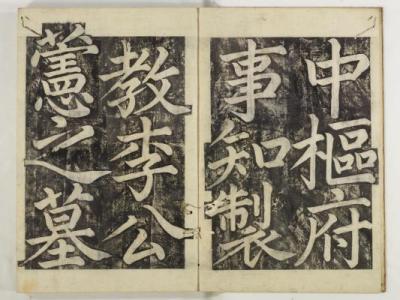 中樞府
事知製
教李公
薵之墓